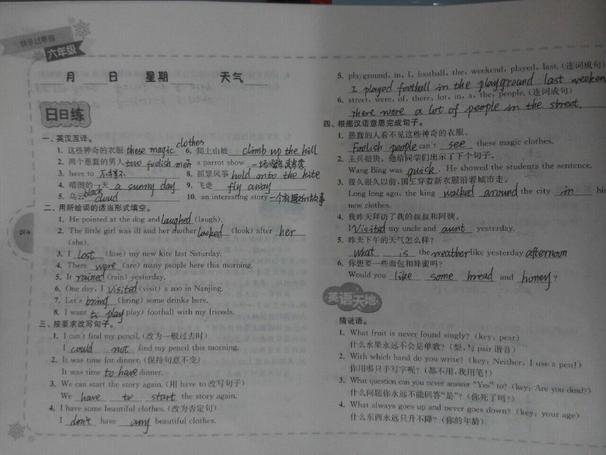 快乐过寒假
六年级
月 日 星期 天气
日日练
一、英汉互译。
1. 这些神奇的衣服 these magic clothes 6. 爬上山坡 climb up the hill
2. 两个愚蠢的男人 two foolish men a parrot show
3. have to 不得不 8. 抓紧风筝 hold onto the kite
4. 晴朗的一天 a sunny day 9. 飞走 fly away
5. 乌云 black cloud 10. an interesting story 一个有趣的故事
二、用所给词的适当形式填空。
1. He pointed at the dog and laughed (laugh).
2. The little girl was ill and her mother looked (look) after her
(she).
3. I lost (lose) my new kite last Saturday.
4. There were (are) many people here this morning.
5. It rained (rain) yesterday.
6. One day, I visited (visit) a zoo in Nanjing.
7. Let's bring (bring) some drinks here.
8. I want to play (play) football with my friends.
三、按要求改写句子。
1. I can't find my pencil. (改为一般过去时)
I could not find my pencil this morning.
2. It was time for dinner. (保持句意不变)
It was time to have dinner.
3. We can start the story again. (用 have to 改写句子)
We have to start the story again.
4. I have some beautiful clothes. (改为否定句)
I don't have any beautiful clothes.
5. playground, in, I, football, the, weekend, played, last. (连词成句)
I played football in the playground last weekend
6. street, were, of, there, lot, in, a, the, people. (连词成句)
there were a lot of people in the street.
四、根据汉语意思完成句子。
1. 愚蠢的人看不见这些神奇的衣服。
Foolish people can't see these magic clothes.
2. 王兵很快。他给同学们出示了下个句子。
Wang Bing was quick. He showed the students the sentence.
3. 很久很久以前，国王穿着新衣服沿着城市走。
Long long ago, the king walked around the city in his
new clothes.
4. 我昨天拜访了我的叔叔和阿姨。
I Visited my uncle and aunt yesterday.
5. 昨天下午的天气怎么样？
What is the weather like yesterday afternoon
6. 你想要一些面包和蜂蜜吗？
Would you like some bread and honey?
英语天地
猜谜语。
1. What fruit is never found singly? (key: pear)
什么水果永远不会是单数？(梨，与 pair 谐音)
2. With which hand do you write? (key: Neither, I use a pen!)
你用哪只手写字呢？(都不用，我用笔！)
3. What question can you never answer "Yes" to? (key: Are you dead?)
什么问题你永远不能回答“是”？(你死了吗？)
4. What always goes up and never goes down? (key: your age)
什么东西永远只升不降？(你的年龄)